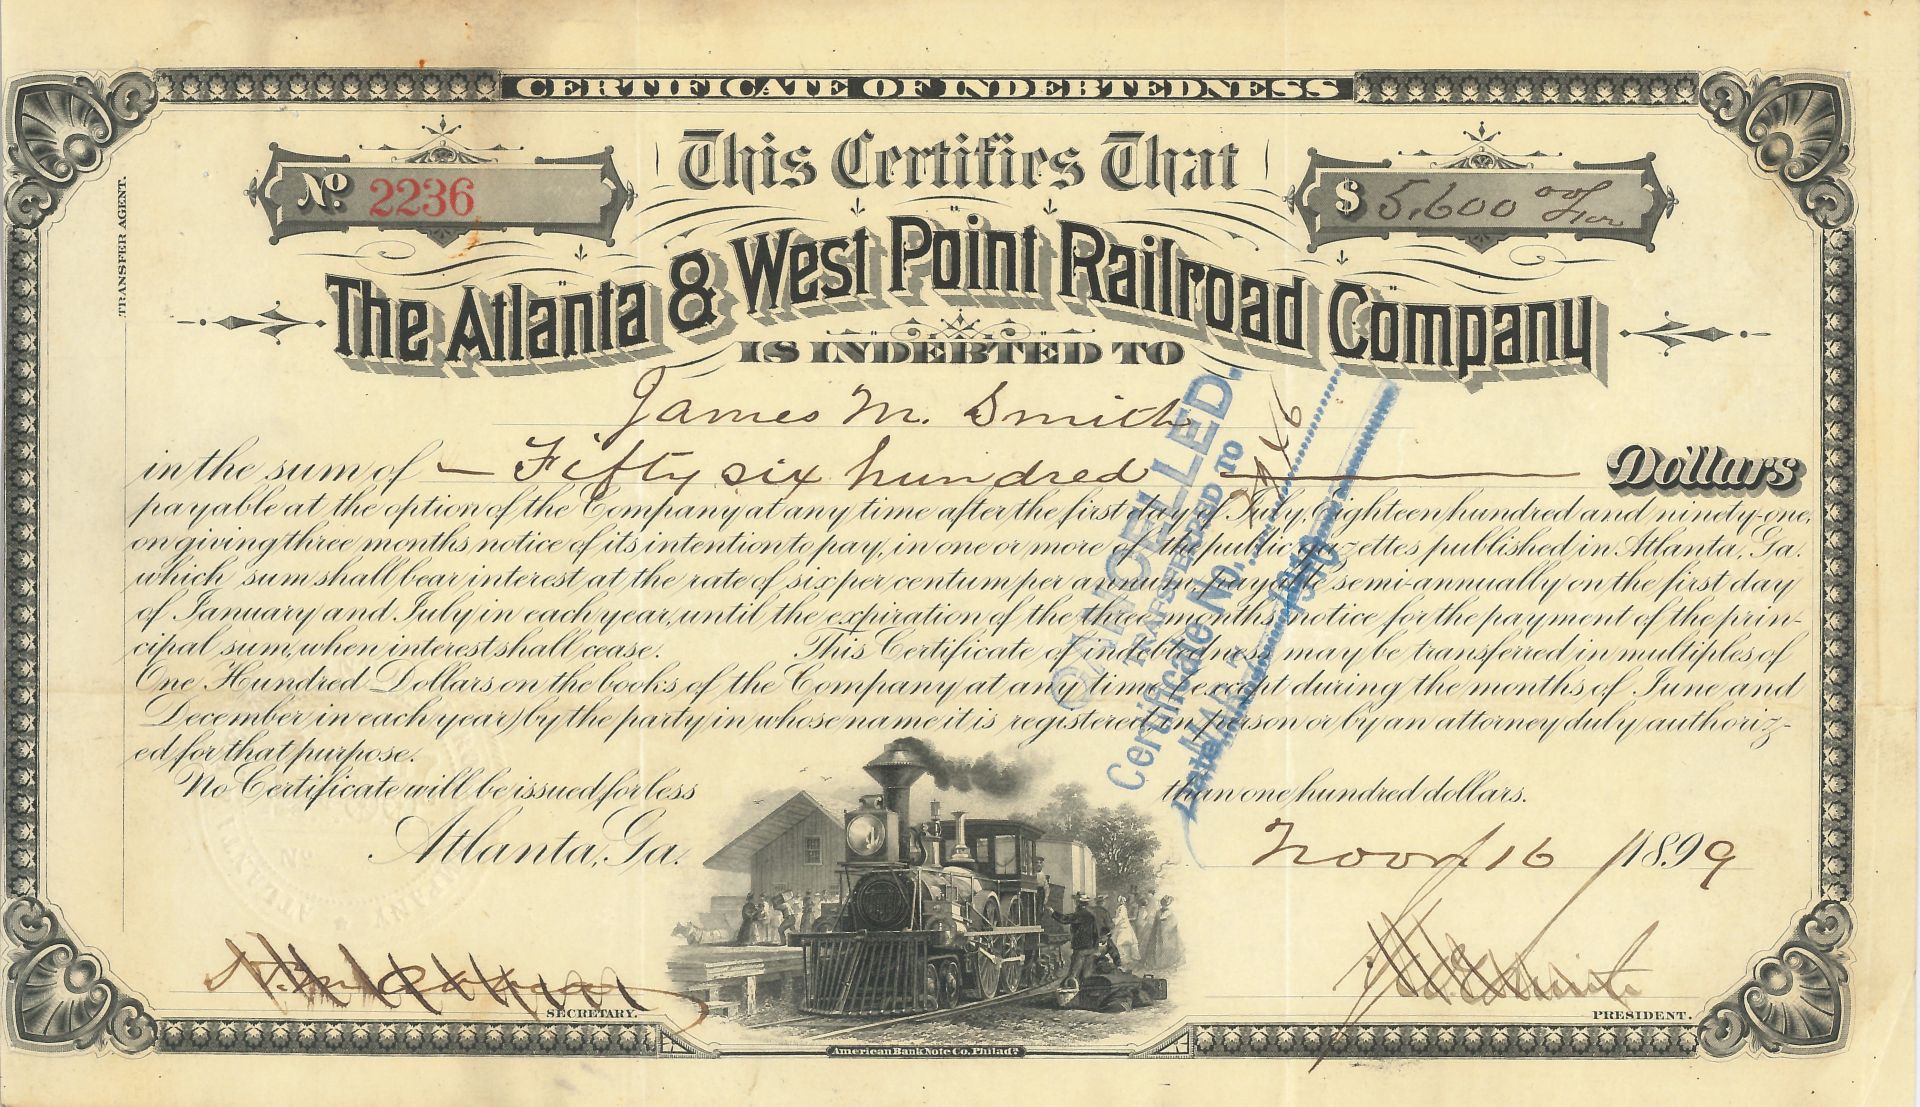 CERTIFICATE OF INDEBTEDNESS
No. 2236
This Certifies That
$ 5,600 00/100
TRANSFER AGENT.
The Atlanta & West Point Railroad Company
IS INDEBTED TO
James M. Smith
in the sum of Fifty six hundred Dollars
payable at the option of the Company at any time after the first day of July, Eighteen hundred and ninety-one,
on giving three months notice of its intention to pay, in one or more of the public gazettes published in Atlanta, Ga.
which sum shall bear interest at the rate of six per centum per annum, payable semi-annually on the first day
of January and July in each year, until the expiration of the three months notice for the payment of the prin-
cipal sum, when interest shall cease. This Certificate of indebtedness may be transferred in multiples of
One Hundred Dollars on the books of the Company at any time (except during the months of June and
December in each year) by the party in whose name it is registered, in person or by an attorney duly authoriz-
ed for that purpose.
No Certificate will be issued for less than one hundred dollars.
Atlanta, Ga. Nov 16 1899
CANCELLED.
TRANSFERRED TO
Certificate No.
Date
SECRETARY.
PRESIDENT.
American Bank Note Co. Philada.